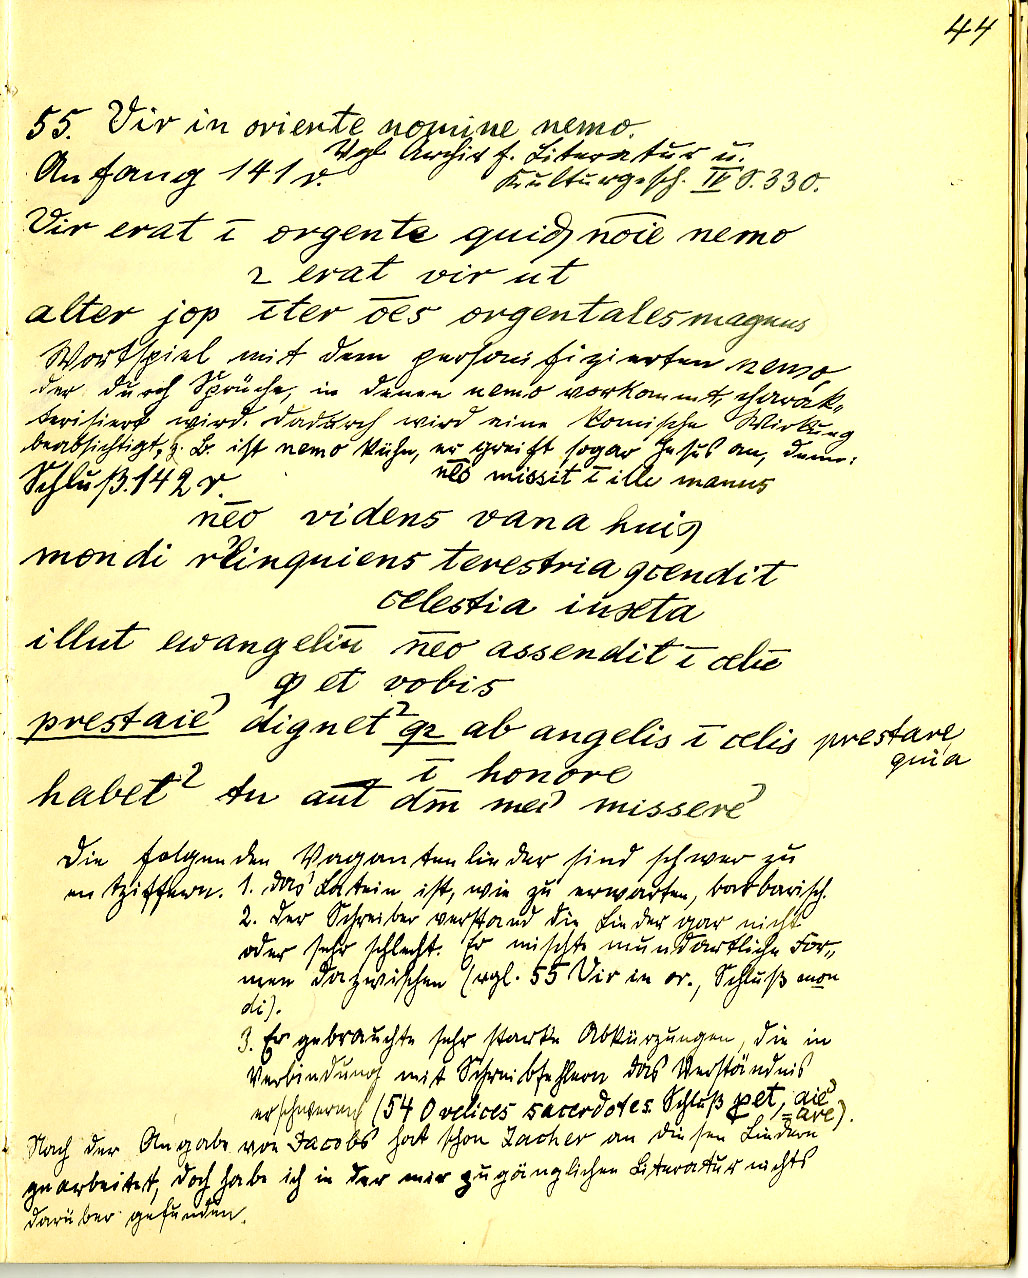 44
55. Vir in oriente nomine nemo.
Vgl. Archiv f. Literatur u.
Anfang 141v. Kulturgesch. IV S. 330.
Vir erat ī orgente quidꝫ no̅ie nemo
⁊ erat vir ut
alter jop īter o̅es orgentales magnus
Wortspiel mit dem personifizierten nemo,
der durch Sprüche, in denen nemo vorkommt, charak-
terisiert wird. Dadurch wird eine komische Wirkung
beabsichtigt, z. B. ist nemo kühn, er greift sogar Jesus an, denn:
Schluß. 142v. ne̅o missit ī ille manus
ne̅o videns vana huiꝰ
mondi relinquiens terestria ascendit
celestia iuxta
illut ewangeliū ne̅o assendit ī celū
qꝫ et vobis
prestaie dignet² q² ab angelis ī celis prestare
quia
ī honore
habet² tu aut̅ dm̅ meꝰ missere
Die folgenden Vagantenlieder sind schwer zu
entziffern. 1. das Latein ist, wie zu erwarten, barbarisch.
2. Der Schreiber verstand die Lieder gar nicht
oder sehr schlecht. Er mischte mundartliche For-
men dazwischen (vgl. 55 Vir in or., Schluß mon
di).
3. Er gebrauchte sehr starke Abkürzungen, die in
Verbindung mit Schreibfehlern das Verständnis
erschweren (54 O velices sacerdotes. Schluß ꝑet, aie
= are).
Nach der Angabe von Jacobs hat schon Zacher an diesen Liedern
gearbeitet, doch habe ich in der mir zugänglichen Literatur nichts
darüber gefunden.